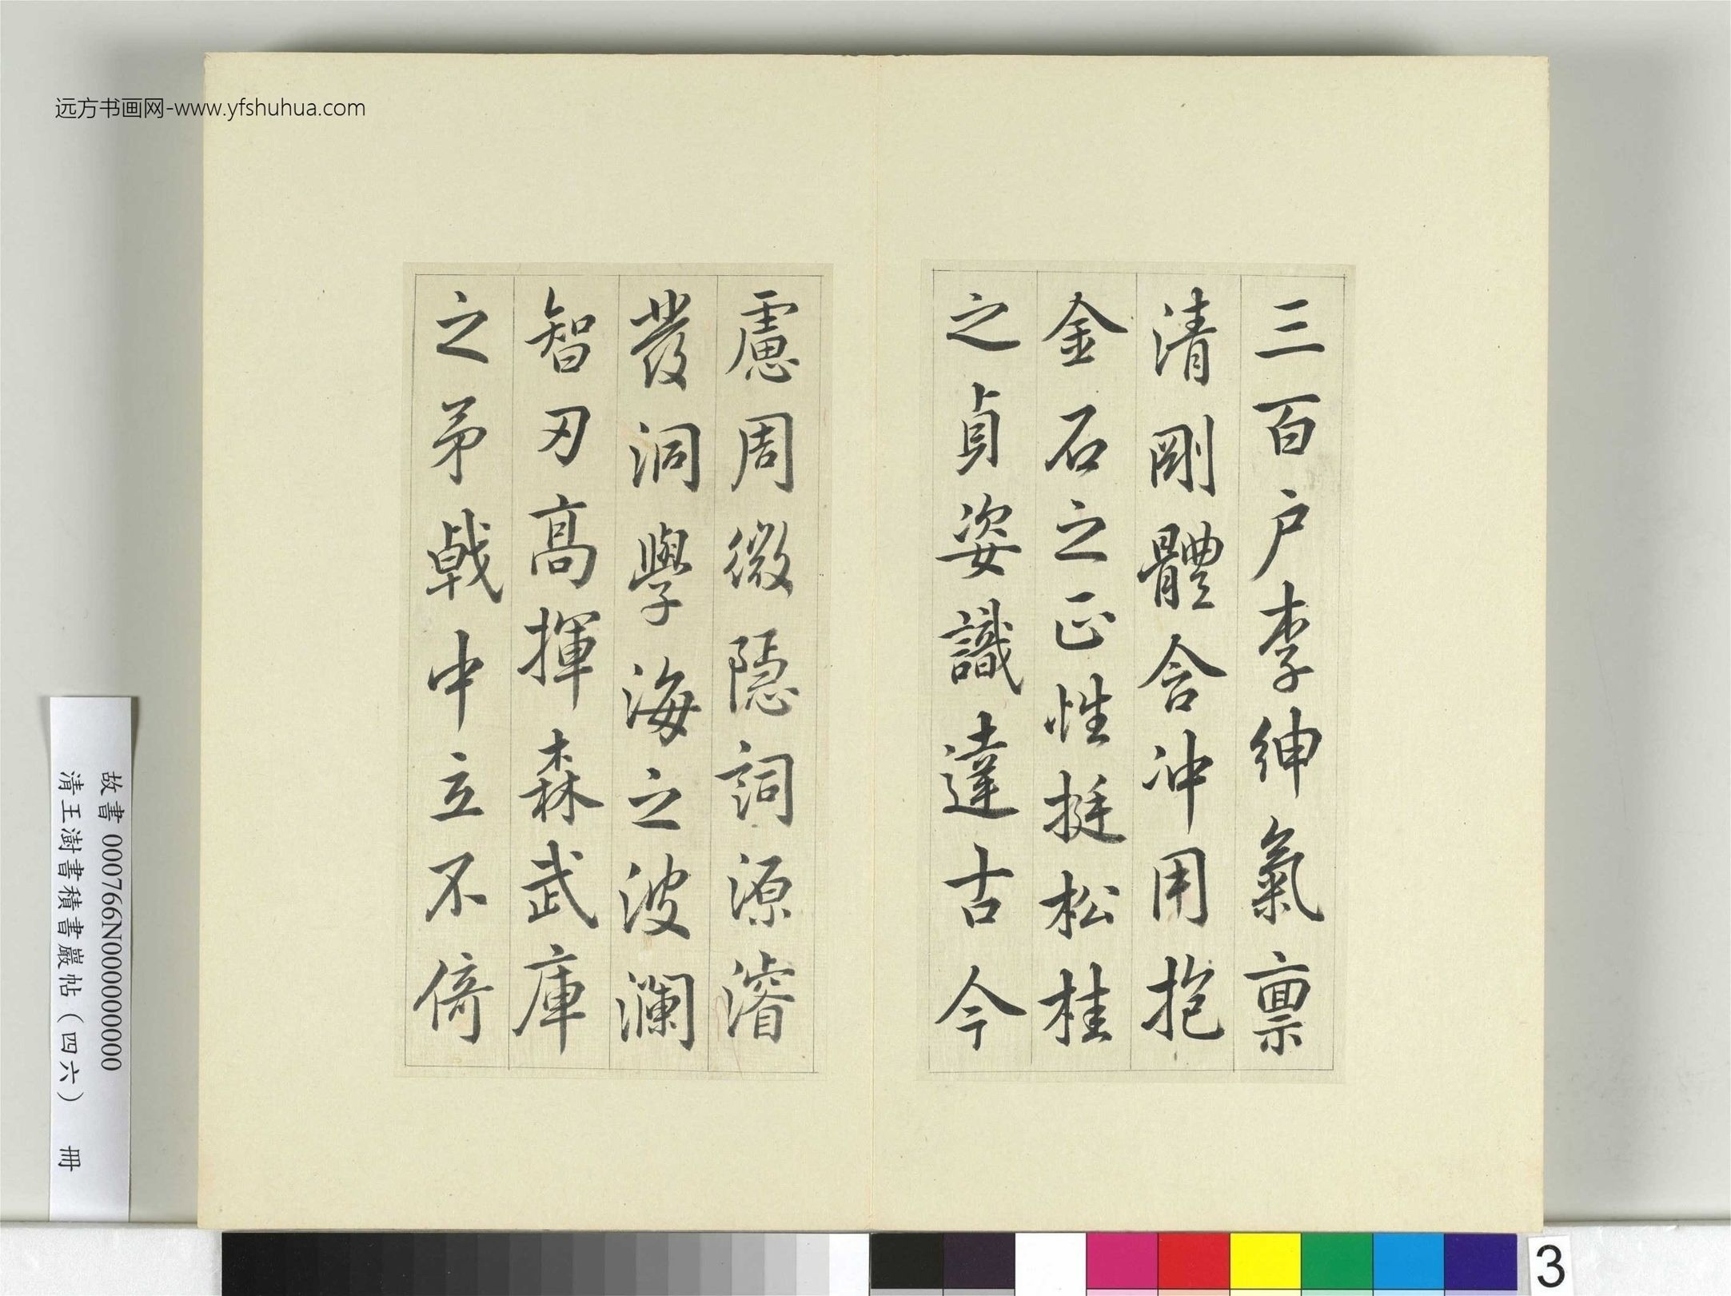 远方书画网-www.yfshuhua.com
三百户李紳氣禀
清剛體含沖用抱
金石之正性挺松桂
之貞姿識達古今
慮周微隱詞源濬
發洞學海之波瀾
智刃高揮森武庫
之矛戟中立不倚
故書 000766N000000000
清王澍書積書巖帖（四六） 冊
3